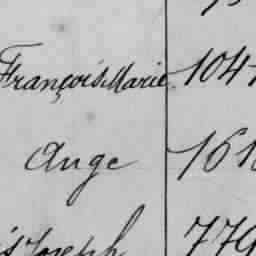 François Marie 104
Ange 161
Joseph 779